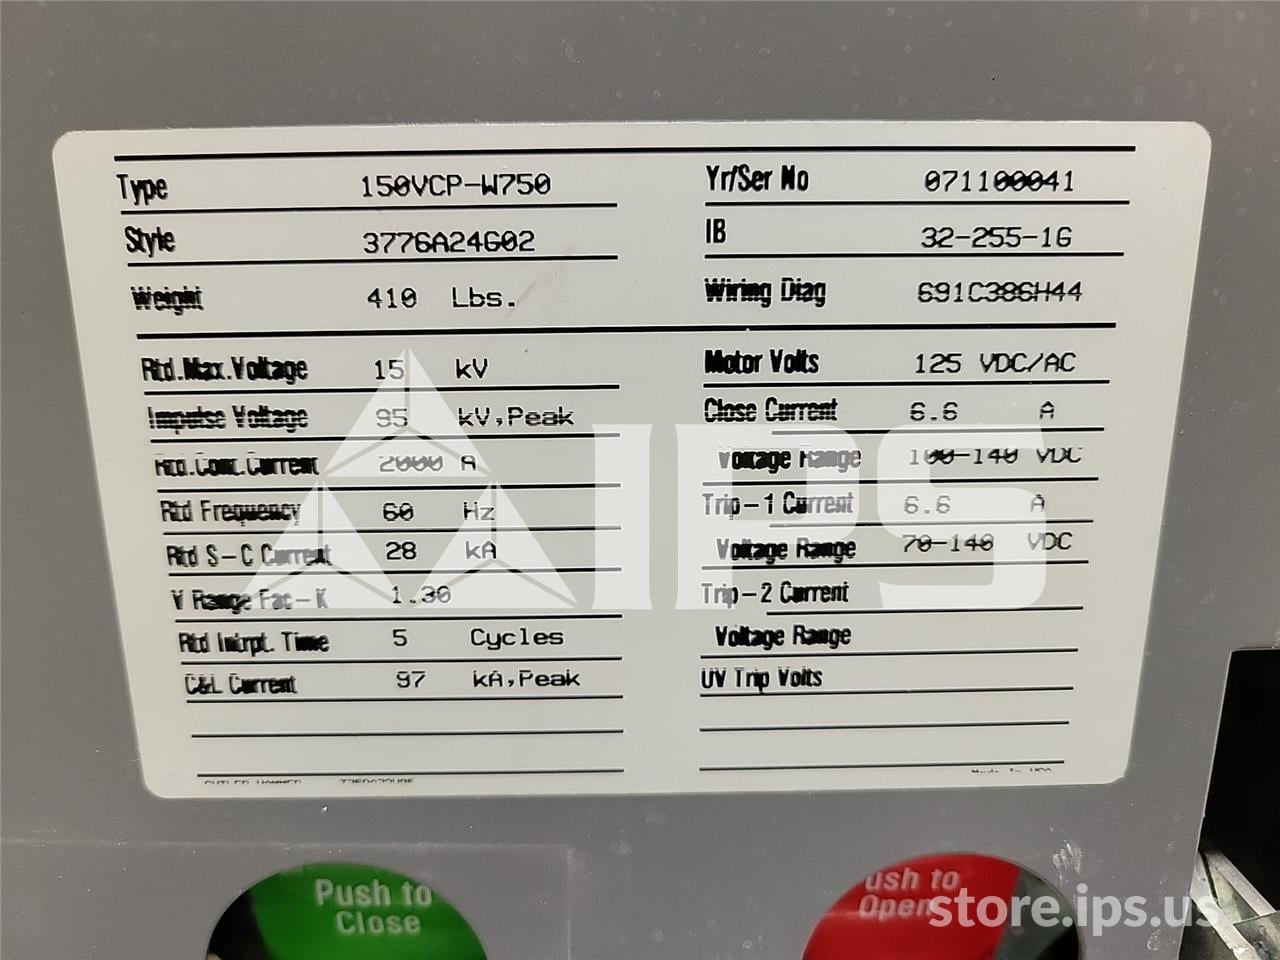 Type 150VCP-W750
Style 3776A24G02
Weight 410 Lbs.
Rtd.Max.Voltage 15 kV
Impulse Voltage 95 kV,Peak
Rtd.Cont.Current 2000 A
Rtd Frequency 60 Hz
Rtd S-C Current 28 kA
V Range Fac-K 1.30
Rtd Intrpt. Time 5 Cycles
C&L Current 97 kA,Peak
CUTLER HAMMER
Yr/Ser No 071100041
IB 32-255-1G
Wiring Diag 691C386H44
Motor Volts 125 VDC/AC
Close Current 6.6 A
Voltage Range 100-140 VDC
Trip-1 Current 6.6 A
Voltage Range 70-140 VDC
Trip-2 Current
Voltage Range
UV Trip Volts
Made In USA
IPS
Push to
Close
ush to
Open
store.ips.us